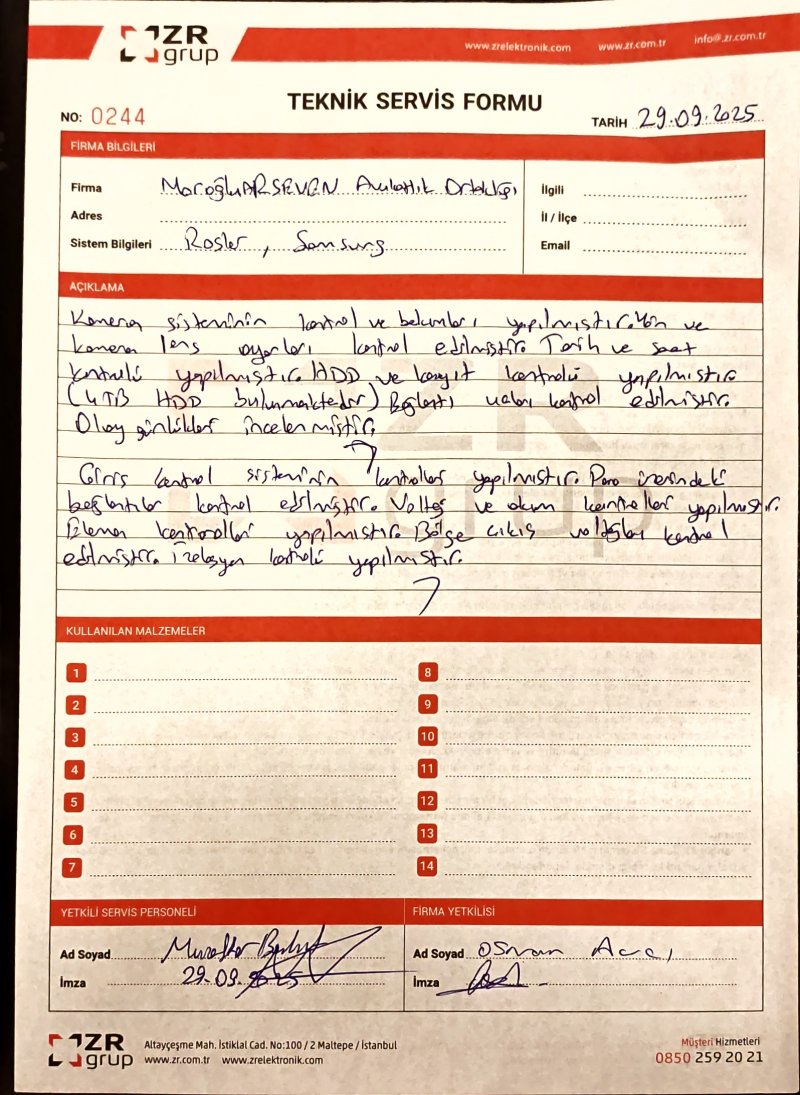 ZR grup
www.zrelektronik.com www.zr.com.tr info@zr.com.tr
TEKNİK SERVİS FORMU
NO: 0244
TARİH 29.09.2025
FİRMA BİLGİLERİ
Firma MoroğluARSEVEN Avukatlık Ortaklığı
Adres
Sistem Bilgileri Rosler, Samsung
İlgili
İl / İlçe
Email
AÇIKLAMA
Kamera sisteminin kontrol ve bakımları yapılmıştır. Yön ve
kamera lens ayarları kontrol edilmiştir. Tarih ve saat
kontrolü yapılmıştır. HDD ve kayıt kontrolü yapılmıştır
(4TB HDD bulunmaktadır) Bağlantı uçları kontrol edilmiştir.
Olay günlükleri incelenmiştir.
Giriş kontrol sisteminin kontrolleri yapılmıştır. Pano üzerindeki
bağlantılar kontrol edilmiştir. Voltaj ve akım kontrolleri yapılmıştır.
kontrolleri yapılmıştır. Bölge çıkış voltajları kontrol
edilmiştir. İzolasyon kontrolü yapılmıştır.
KULLANILAN MALZEMELER
1
2
3
4
5
6
7
8
9
10
11
12
13
14
YETKİLİ SERVİS PERSONELİ
Ad Soyad
İmza 29.09.2025
FİRMA YETKİLİSİ
Ad Soyad Osman Avcı
İmza
ZR grup
Altayçeşme Mah. İstiklal Cad. No:100 / 2 Maltepe / İstanbul
www.zr.com.tr www.zrelektronik.com
Müşteri Hizmetleri
0850 259 20 21